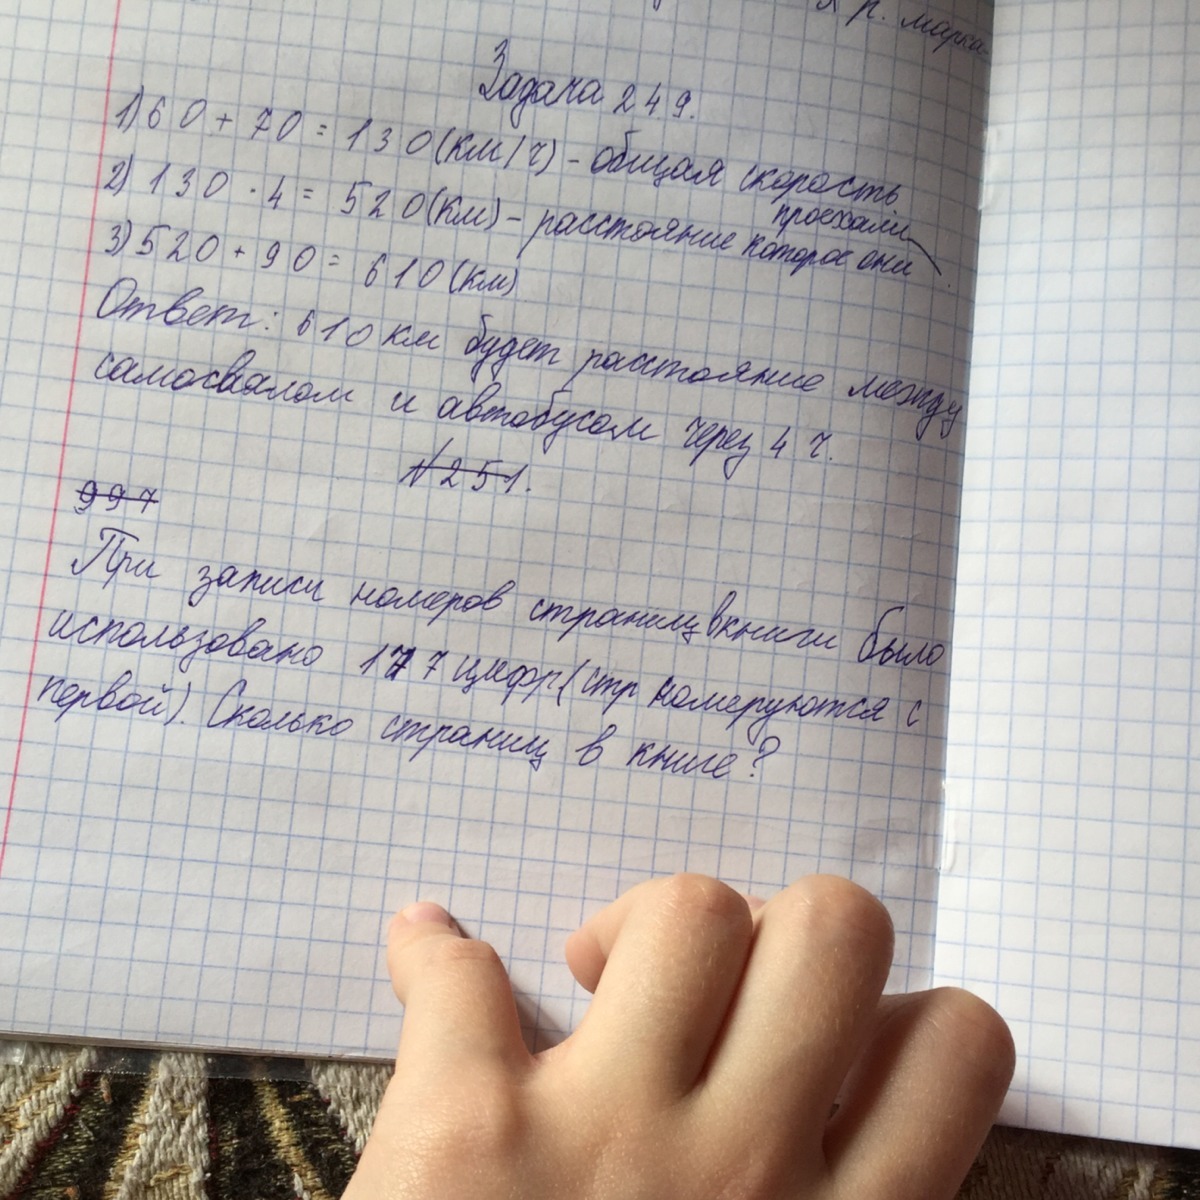 Я р. марка-
Задача 249.
1) 60 + 70 = 130 (км/ч) - общая скорость
2) 130 · 4 = 520 (км) - расстояние которое они проехали
3) 520 + 90 = 610 (км)
Ответ: 610 км будет расстояние между
самосвалом и автобусом через 4 ч.
№251.
997
При записи номеров страниц в книги было
использовано 177 цифр (стр номеруются с
первой). Сколько страниц в книге?